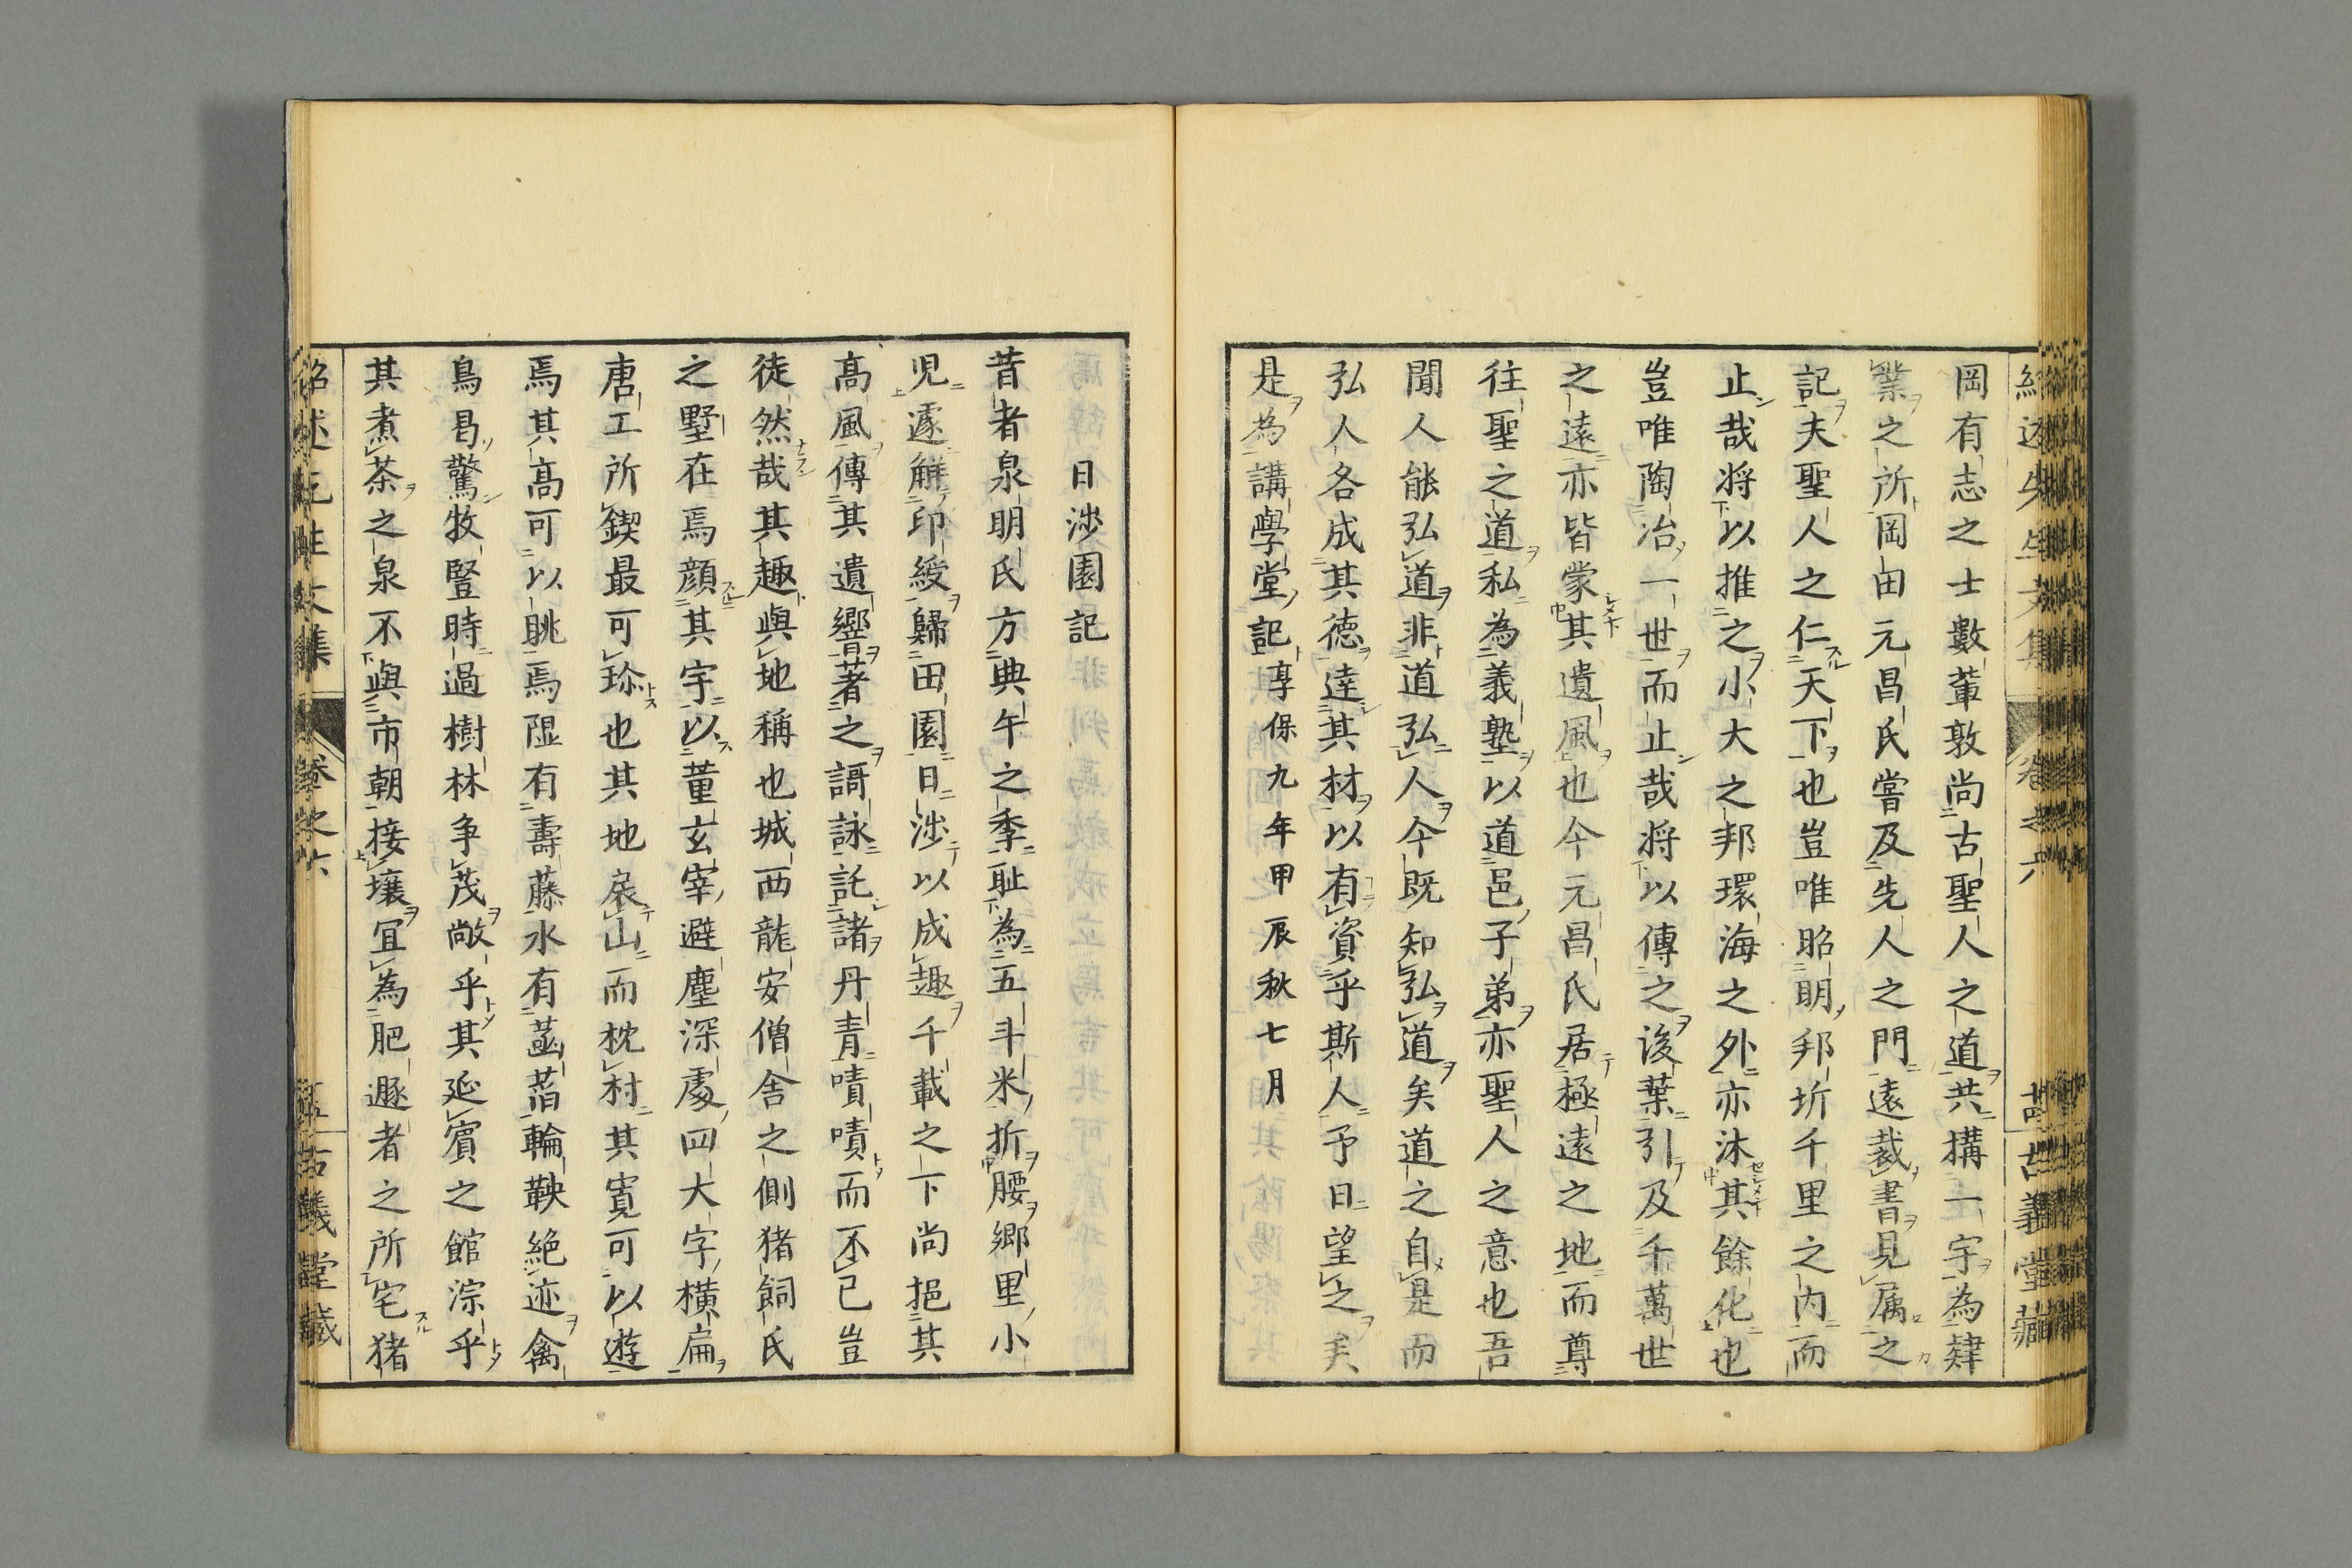 岡有志之士數輩敦尚古聖人之道共搆一宇為肄
業之所岡田元昌氏嘗及先人之門遠裁書見属之
記夫聖人之仁天下也豈唯昭明邦圻千里之内而
止哉将以推之小大之邦環海之外亦沐其餘化也
豈唯陶冶一世而止哉将以傳之後葉引及千萬世
之遠亦皆蒙其遺風也今元昌氏居極遠之地而尊
往聖之道私為義塾以道邑子弟亦聖人之意也吾
聞人能弘道非道弘人今既知弘道矣道之自是而
弘人各成其徳達其材以有資乎斯人予日望之矣
是為講學堂記享保九年甲辰秋七月
日渉園記
昔者泉明氏方典午之季耻為五斗米折腰郷里小
児遽解印綬歸田園日渉以成趣千載之下尚挹其
髙風傳其遺響著之謌詠託諸丹青嘖嘖而不已豈
徒然哉其趣與地稱也城西龍安僧舎之側猪飼氏
之墅在焉顔其宇以董玄宰避塵深處四大字横扁
唐工所鍥最可珍也其地扆山而枕村其寛可以遊
焉其髙可以眺焉隰有壽藤水有菡萏輪鞅絶迹禽
鳥曷驚牧豎時過樹林争茂敞乎其延賓之館淙乎
其煮茶之泉不與市朝接壌宜為肥遯者之所宅猪
紹述先生文集
卷之六
古義堂藏